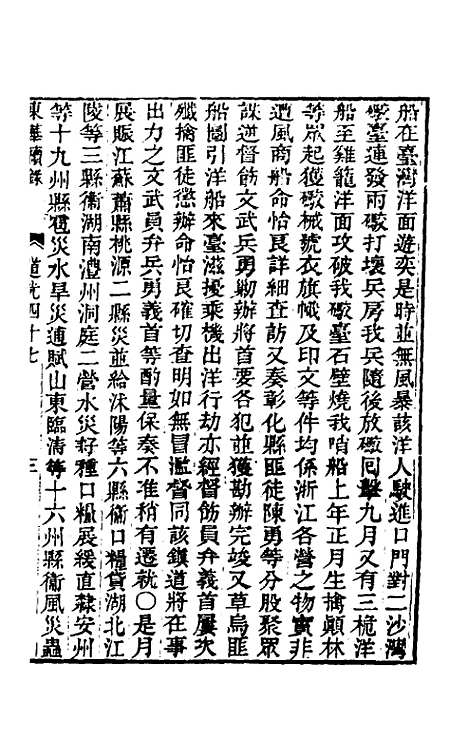 船在臺灣洋面遊奕是時並無風暴該洋人駛進口門對二沙灣
礮臺連發兩礮打壞兵房我兵隨後放礮回擊九月又有三桅洋
船至雞籠洋面攻破我礮臺石壁燒我哨船上年正月生擒顛林
等眾起獲礮械號衣旗幟及印文等件均係浙江各營之物實非
遭風商船命怡良詳細查訪又奏彰化縣匪徒陳勇等分股聚眾
謀逆督飭文武兵勇勦辦將首要各犯並獲勘辦完竣又草烏匪
船圖引洋船來臺滋擾乘機出洋行劫亦經督飭員弁義首屢次
殲擒匪徒懲辦命怡良確切查明如無冒濫督同該鎮道將在事
出力之文武員弁兵勇義首等酌量保奏不准稍有遷就〇是月
展賑江蘇蕭縣桃源二縣災並給沭陽等六縣衞口糧貸湖北江
陵等三縣衞湖南澧州洞庭二營水災籽種口糧展緩直隸安州
等十九州縣雹災水旱災逋賦山東臨清等十六州縣衞風災蟲
東華續錄 道光四十七 三